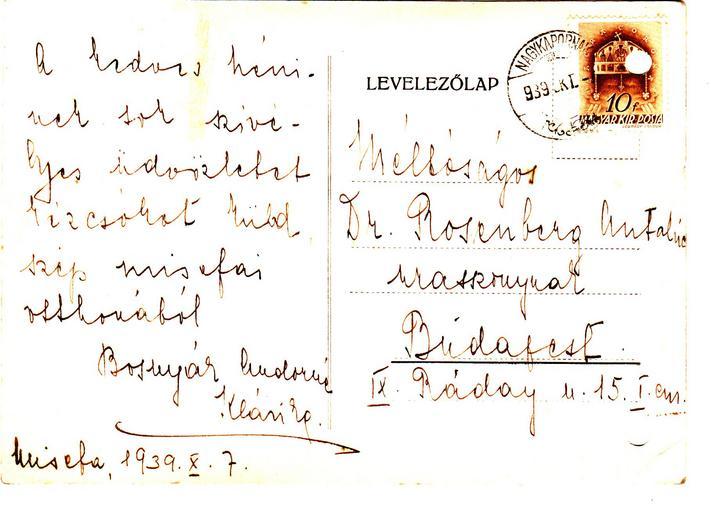 A kedves néni-
nek sok szívé-
lyes üdvözletet
kézcsókot küld
szép misefai
otthonából
Bosnyák Andorné
Klári
Misefa, 1939. X. 7.
LEVELEZŐLAP
NAGYKAPORNAK
939
10f
MAGYAR KIR. POSTA
Méltóságos
Dr. Rosenberg Antalné
uraskonynak
Budapest.
IX. Ráday u. 15. I. em.